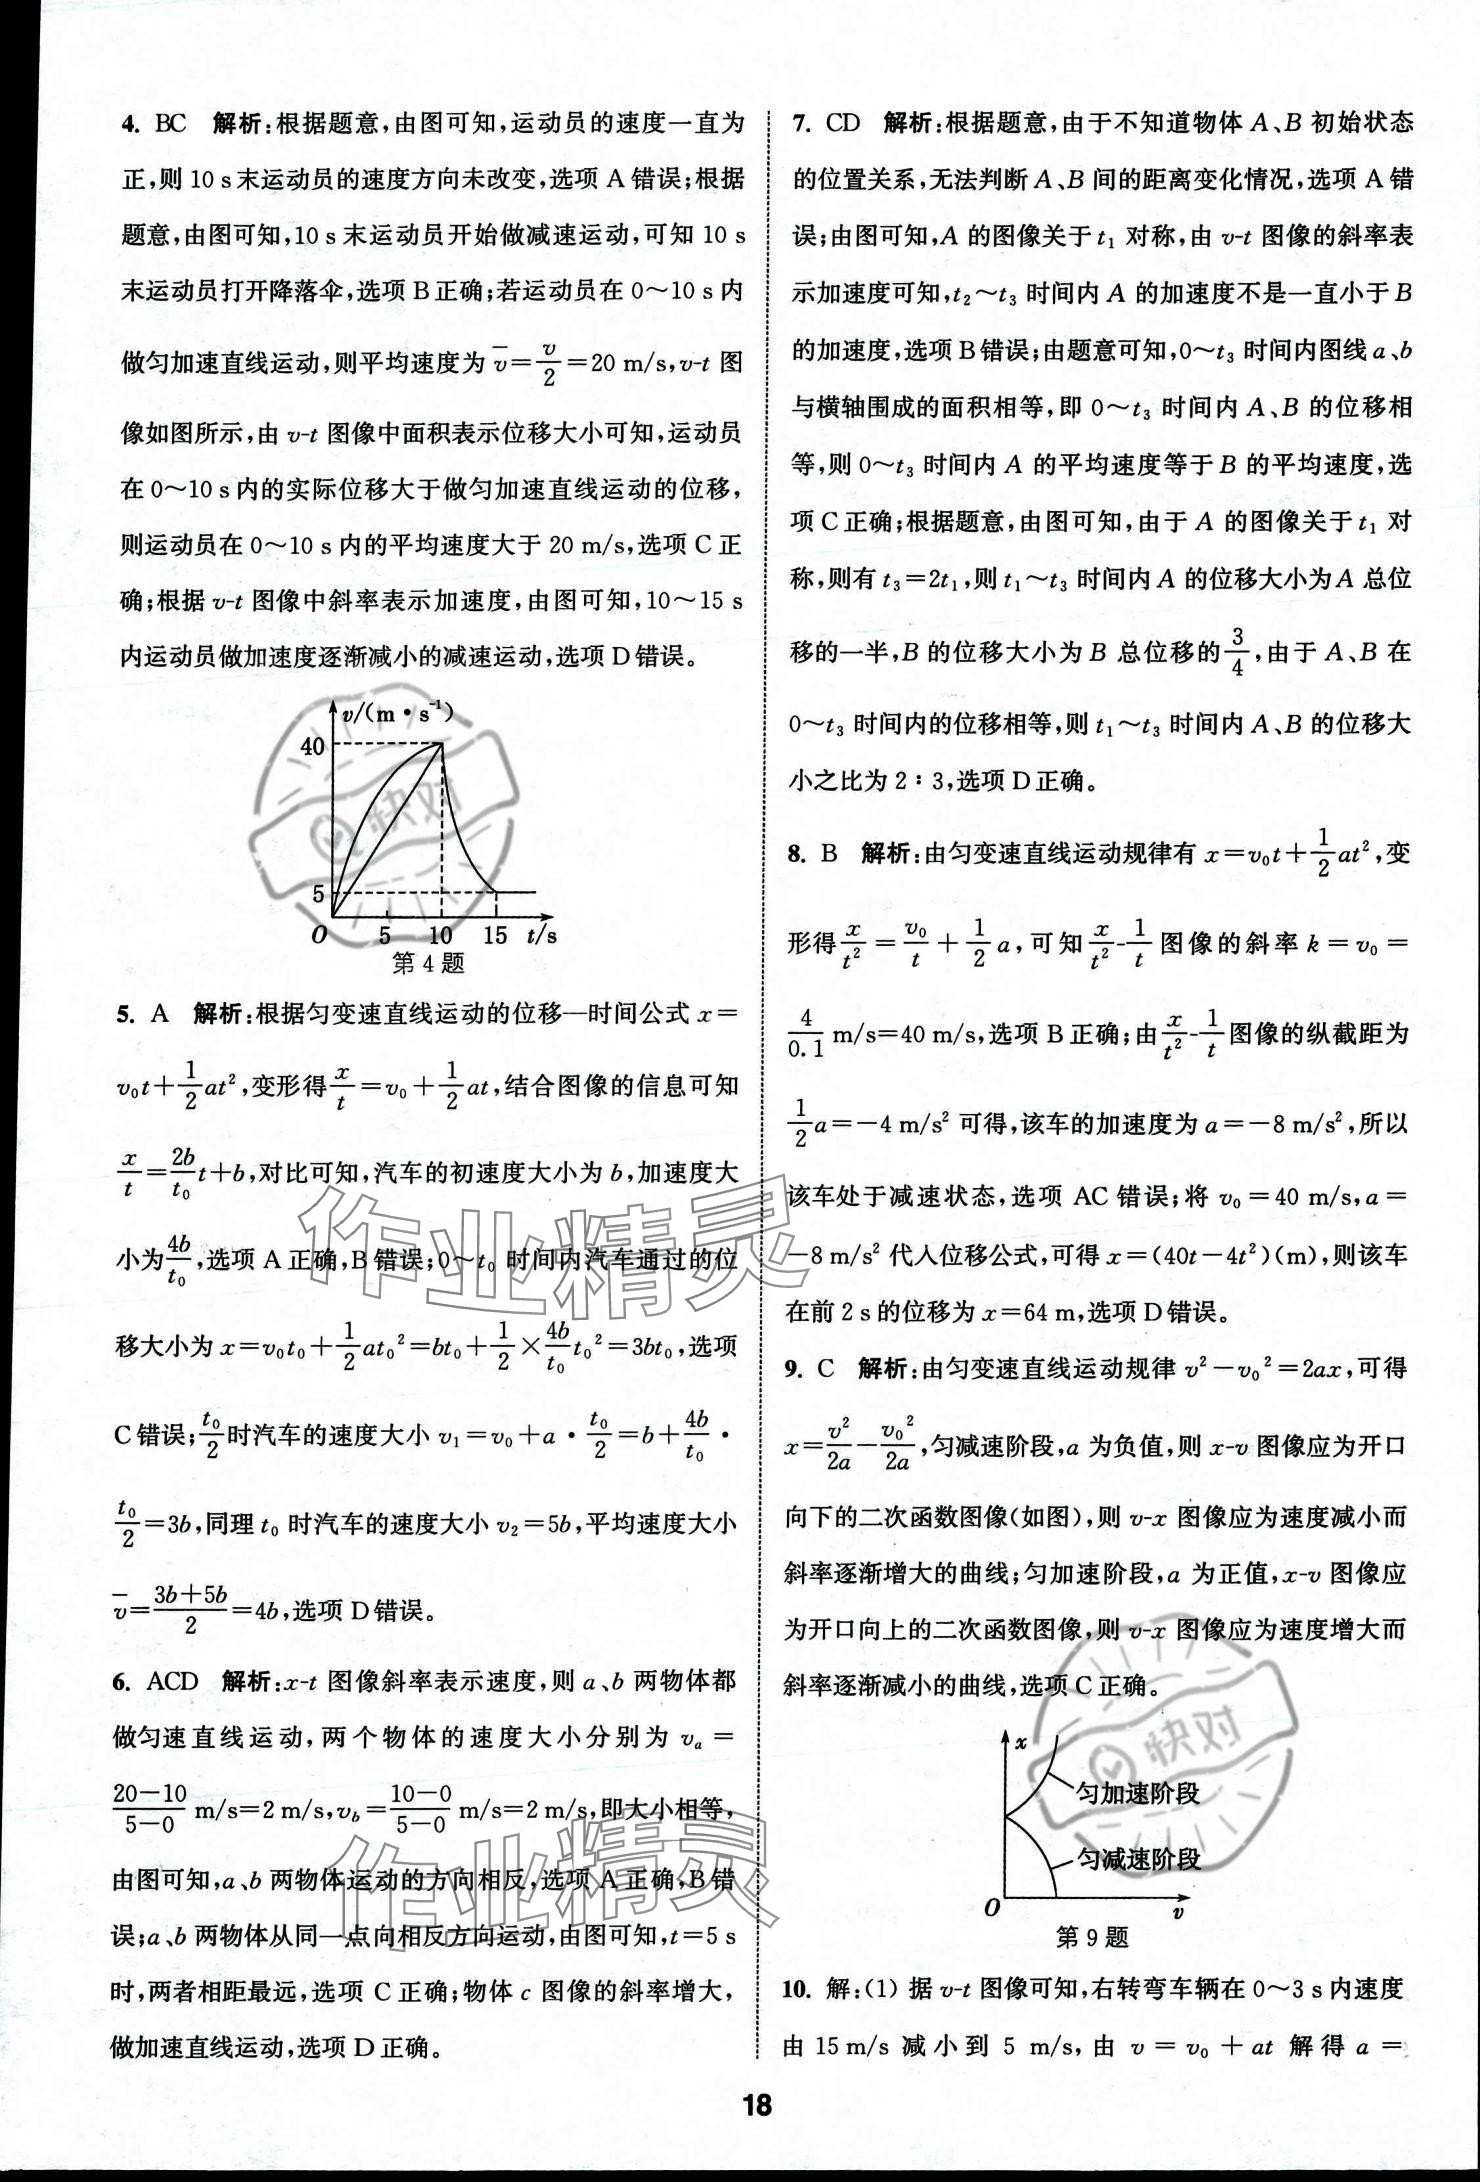 4. BC 解析:根据题意,由图可知,运动员的速度一直为
正,则10 s末运动员的速度方向未改变,选项A错误;根据
题意,由图可知,10 s末运动员开始做减速运动,可知10 s
末运动员打开降落伞,选项B正确;若运动员在0～10 s内
做匀加速直线运动,则平均速度为v̄=v/2=20 m/s,v-t图
像如图所示,由v-t图像中面积表示位移大小可知,运动员
在0～10 s内的实际位移大于做匀加速直线运动的位移,
则运动员在0～10 s内的平均速度大于20 m/s,选项C正
确;根据v-t图像中斜率表示加速度,由图可知,10～15 s
内运动员做加速度逐渐减小的减速运动,选项D错误。
v/(m·s⁻¹)
40
5
O 5 10 15 t/s
第4题
5. A 解析:根据匀变速直线运动的位移—时间公式x=
v₀t+1/2at²,变形得x/t=v₀+1/2at,结合图像的信息可知
x/t=2b/t₀t+b,对比可知,汽车的初速度大小为b,加速度大
小为4b/t₀,选项A正确,B错误;0～t₀时间内汽车通过的位
移大小为x=v₀t₀+1/2at₀²=bt₀+1/2×4b/t₀t₀²=3bt₀,选项
C错误;t₀/2时汽车的速度大小v₁=v₀+a·t₀/2=b+4b/t₀·
t₀/2=3b,同理t₀时汽车的速度大小v₂=5b,平均速度大小
v̄=(3b+5b)/2=4b,选项D错误。
6. ACD 解析:x-t图像斜率表示速度,则a、b两物体都
做匀速直线运动,两个物体的速度大小分别为vₐ=
(20-10)/(5-0) m/s=2 m/s,v_b=(10-0)/(5-0) m/s=2 m/s,即大小相等,
由图可知,a、b两物体运动的方向相反,选项A正确,B错
误;a、b两物体从同一点向相反方向运动,由图可知,t=5 s
时,两者相距最远,选项C正确;物体c图像的斜率增大,
做加速直线运动,选项D正确。
7. CD 解析:根据题意,由于不知道物体A、B初始状态
的位置关系,无法判断A、B间的距离变化情况,选项A错
误;由图可知,A的图像关于t₁对称,由v-t图像的斜率表
示加速度可知,t₂～t₃时间内A的加速度不是一直小于B
的加速度,选项B错误;由题意可知,0～t₃时间内图线a、b
与横轴围成的面积相等,即0～t₃时间内A、B的位移相
等,则0～t₃时间内A的平均速度等于B的平均速度,选
项C正确;根据题意,由图可知,由于A的图像关于t₁对
称,则有t₃=2t₁,则t₁～t₃时间内A的位移大小为A总位
移的一半,B的位移大小为B总位移的3/4,由于A、B在
0～t₃时间内的位移相等,则t₁～t₃时间内A、B的位移大
小之比为2∶3,选项D正确。
8. B 解析:由匀变速直线运动规律有x=v₀t+1/2at²,变
形得x/t²=v₀/t+1/2a,可知x/t²-1/t图像的斜率k=v₀=
4/0.1 m/s=40 m/s,选项B正确;由x/t²-1/t图像的纵截距为
1/2a=-4 m/s²可得,该车的加速度为a=-8 m/s²,所以
该车处于减速状态,选项AC错误;将v₀=40 m/s,a=
-8 m/s²代入位移公式,可得x=(40t-4t²)(m),则该车
在前2 s的位移为x=64 m,选项D错误。
9. C 解析:由匀变速直线运动规律v²-v₀²=2ax,可得
x=v²/2a-v₀²/2a,匀减速阶段,a为负值,则x-v图像应为开口
向下的二次函数图像(如图),则v-x图像应为速度减小而
斜率逐渐增大的曲线;匀加速阶段,a为正值,x-v图像应
为开口向上的二次函数图像,则v-x图像应为速度增大而
斜率逐渐减小的曲线,选项C正确。
x
匀加速阶段
匀减速阶段
O v
第9题
10. 解:(1) 据v-t图像可知,右转弯车辆在0～3 s内速度
由15 m/s减小到5 m/s,由v=v₀+at解得a=
18
作业精灵
作业精灵
快对
快对